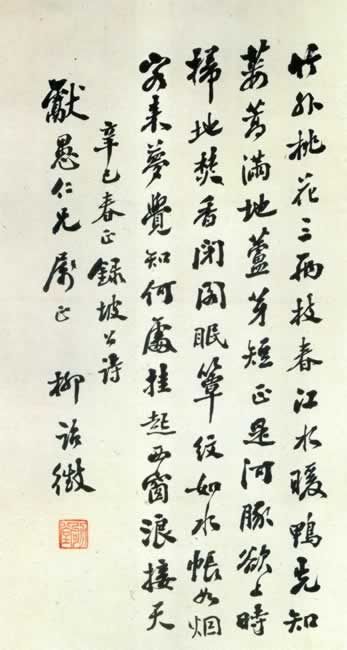 竹外桃花三兩枝春江水暖鴨先知
蔞蒿滿地蘆芽短正是河豚欲上時
掃地焚香閉閣眠簟紋如水帳如烟
客來夢覺知何處挂起西窗浪接天
辛巳春正錄坡公詩
獻愚仁兄屬正 柳詒徵